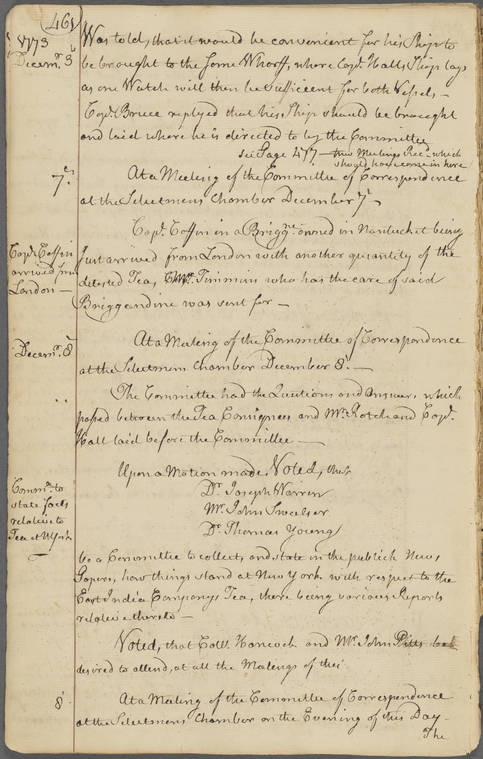 461
1773
Decemr. 3d
Was told, that it would be convenient for his Ship to
be brought to the same Wharff, where Capt. Halls Ship lays
as one Watch will then be sufficient for both Vessels —
Capt. Bruce replyed that his Ship should be brought
and laid where he is directed to by the Committee
see Page 477. — two Meetings Rec. which
should have come in here
7th.
At a Meeting of the Committee of Correspondence
at the Selectmens Chamber December 7th
Capt. Coffin
arrived from
London —
Capt. Coffin in a Briggne. owned in Nantucket being
Just arrived from London with another quantity of the
detested Tea, Mr. Timmins who has the care of said
Briggandine was sent for —
Decemr. 8
At a Meeting of the Committee of Correspondence
at the Selectmens Chamber December 8. —
The Committee had the Questions and Answers, which
passed between the Tea Consignees, and Mr. Rotch and Capt.
Hall laid before the Committee —
Commee. to
state facts
relative to
Tea at NYork
Upon a Motion made Voted, that
Dr. Joseph Warren
Mr. John Sweetser
Dr. Thomas Young
be a Committee to collect, and state in the publick News
Papers, how things stand at New York with respect to the
East India Companys Tea, there being various Reports
relative thereto —
Voted, that Coll. Hancock and Mr. John Pitts be
desired to attend, at all the Meetings of this
8
At a Meeting of the Committee of Correspondence
at the Selectmens Chamber on the Evening of this Day —
The